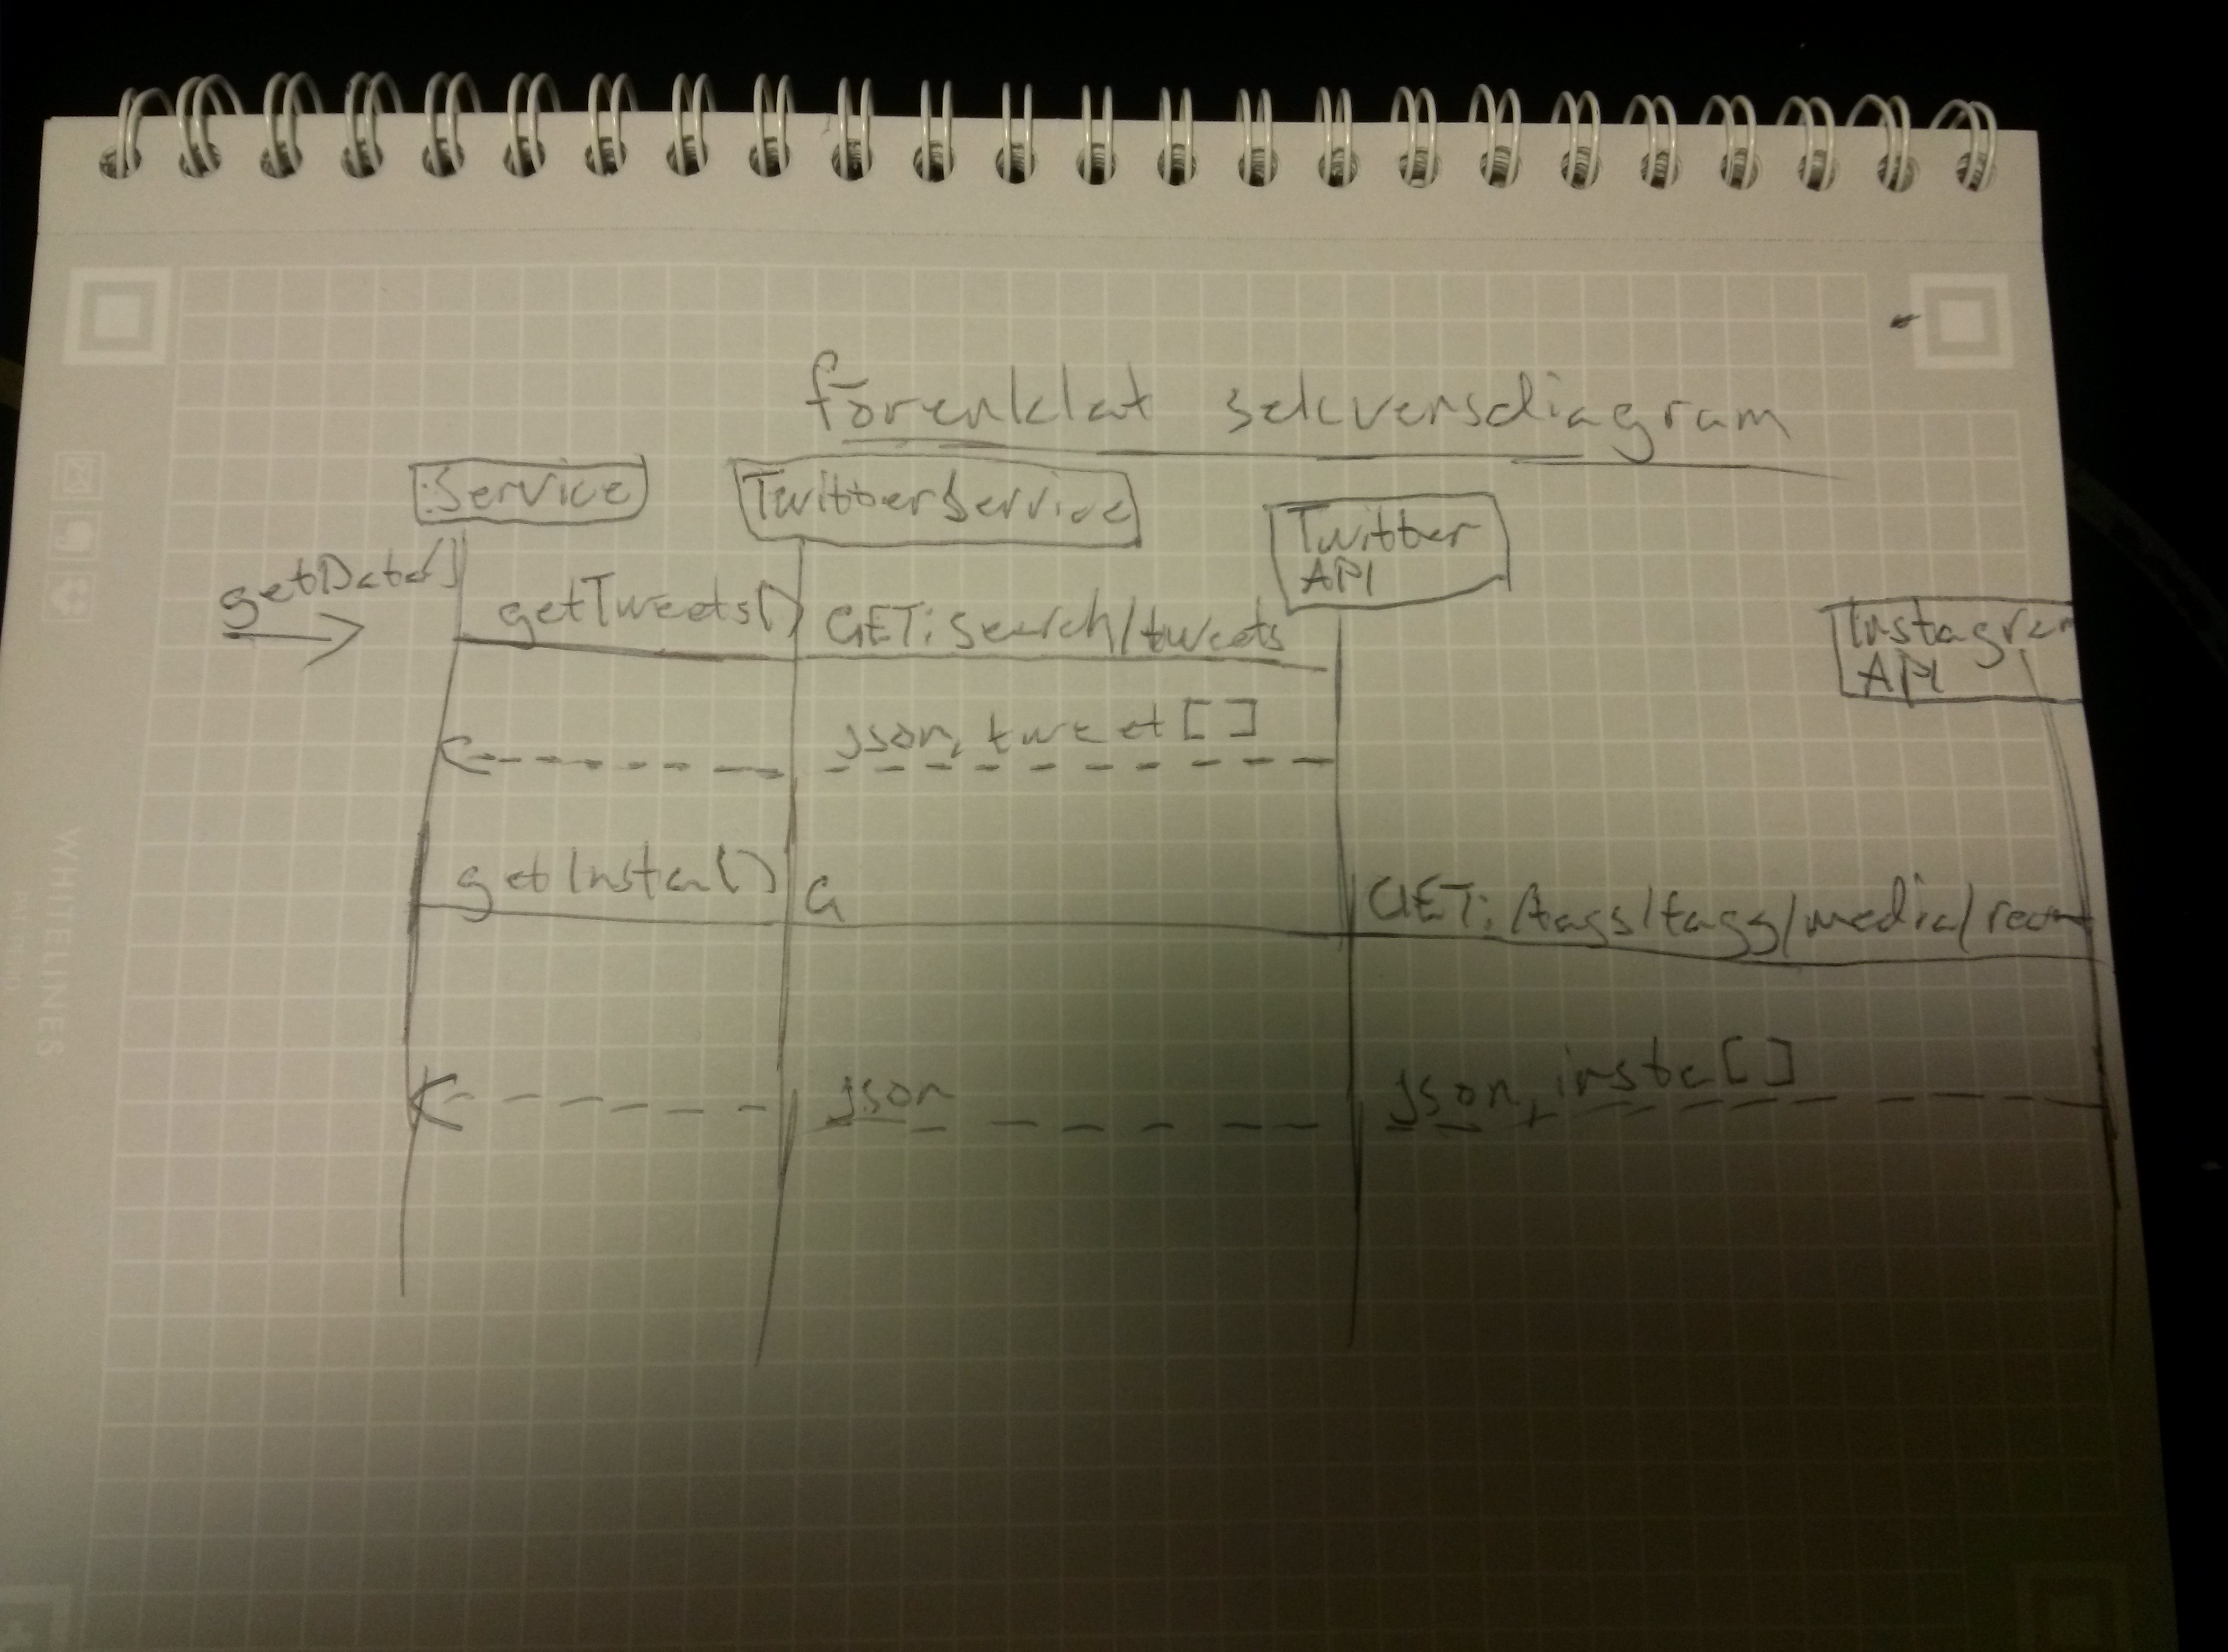 förenklat sekvensdiagram
:Service
TwitterService
Twitter
API
Instagram
API
getData()
getTweets()
GET: search/tweets
json, tweet[]
getInsta()
G
GET: /tags/tagg/media/recen
json
json, insta[]
WHITELINES